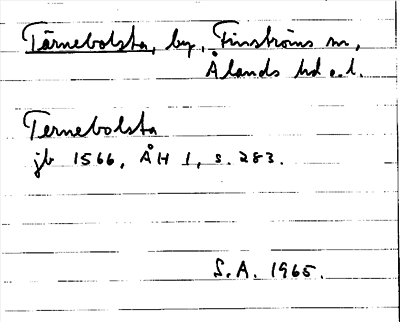 Tärnebolsta, by, Finströms sn,
Ålands hd o. l.
Ternebolsta
jb 1566, ÅH 1, s. 283.
S.A. 1965.